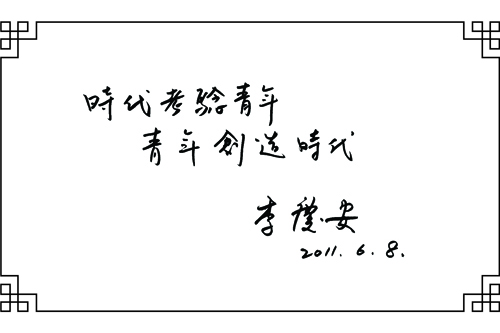 時代考驗青年
青年創造時代
李慶安
2011.6.8.